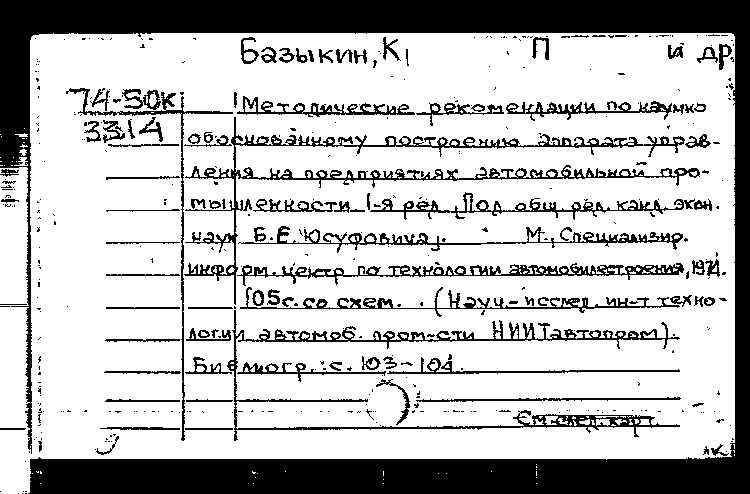 Базыкин, К П и др
74-50к Методические рекомендации по научно
3314 обоснованному построению аппарата управ-
ления на предприятиях автомобильной про-
мышленности 1-я ред. [Под общ. ред. канд. экон.
наук Б.Е. Юсуфовича]. М., Специализир.
информ. центр по технологии автомобилестроения, 1974.
105 с. со схем. (Науч.-исслед. ин-т техно-
логии автомоб. пром-сти НИИТавтопром).
Библиогр.: с. 103-104.
См. след. карт.
лк